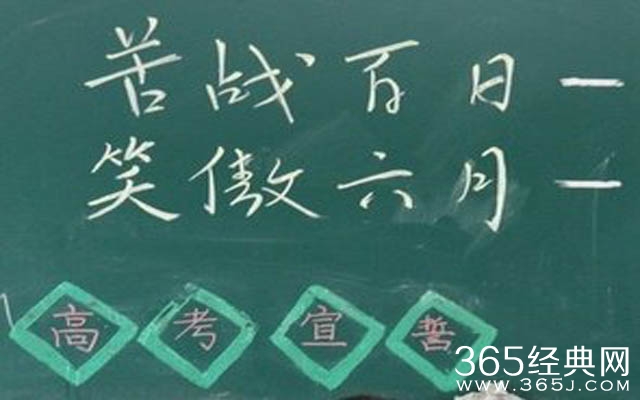 苦战百日—
笑傲六月—
高考宣誓
365经典网
www.365J.com